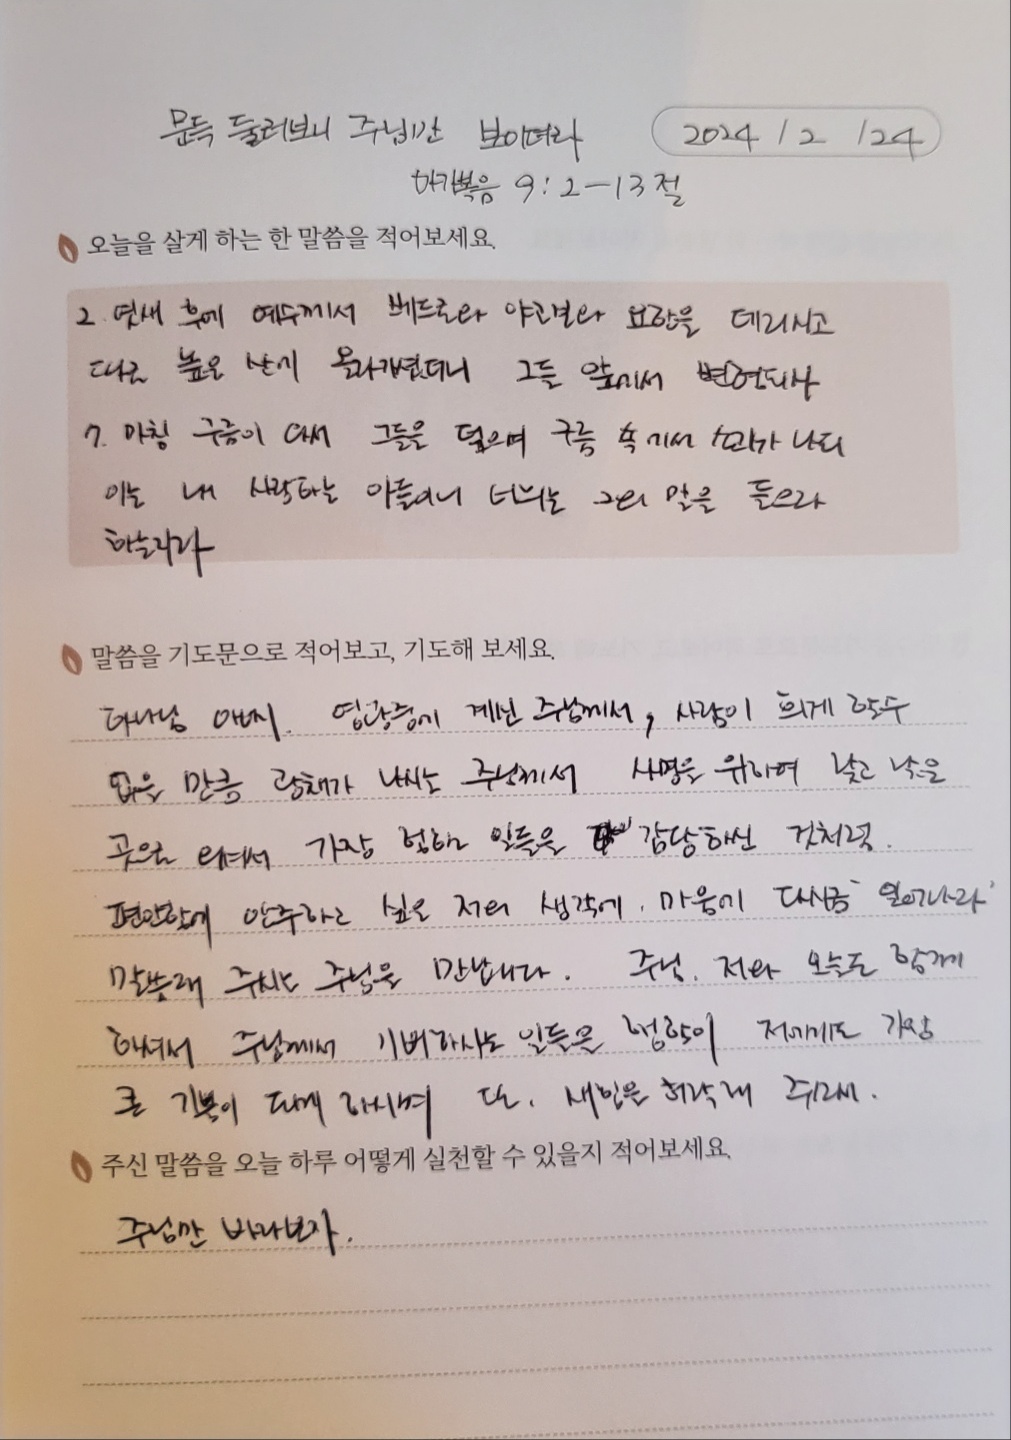 문득 둘러보니 주님만 보이더라
2024 / 2 / 24
마가복음 9:2-13절
오늘을 살게 하는 한 말씀을 적어보세요.
2. 엿새 후에 예수께서 베드로와 야고보와 요한을 데리시고
따로 높은 산에 올라가셨더니 그들 앞에서 변형되사
7. 마침 구름이 와서 그들을 덮으며 구름 속에서 소리가 나되
이는 내 사랑하는 아들이니 너희는 그의 말을 들으라
하는지라
말씀을 기도문으로 적어보고, 기도해 보세요.
하나님 아버지. 영광중에 계신 주님께서, 사람이 희게 할 수
없을 만큼 광채가 나시는 주님께서 사명을 위하여 낮고 낮은
곳으로 오셔서 가장 험한 일들을 감당하신 것처럼.
편안함에 안주하고 싶은 저의 생각에, 마음에 다시금 '일어나라'
말씀해 주시는 주님을 만납니다. 주님. 저와 오늘도 함께
하셔서 주님께서 기뻐하시는 일들을 행함이 저에게도 가장
큰 기쁨이 되게 하시며 또, 새힘을 허락해 주소서.
주신 말씀을 오늘 하루 어떻게 실천할 수 있을지 적어보세요.
주님만 바라보자.